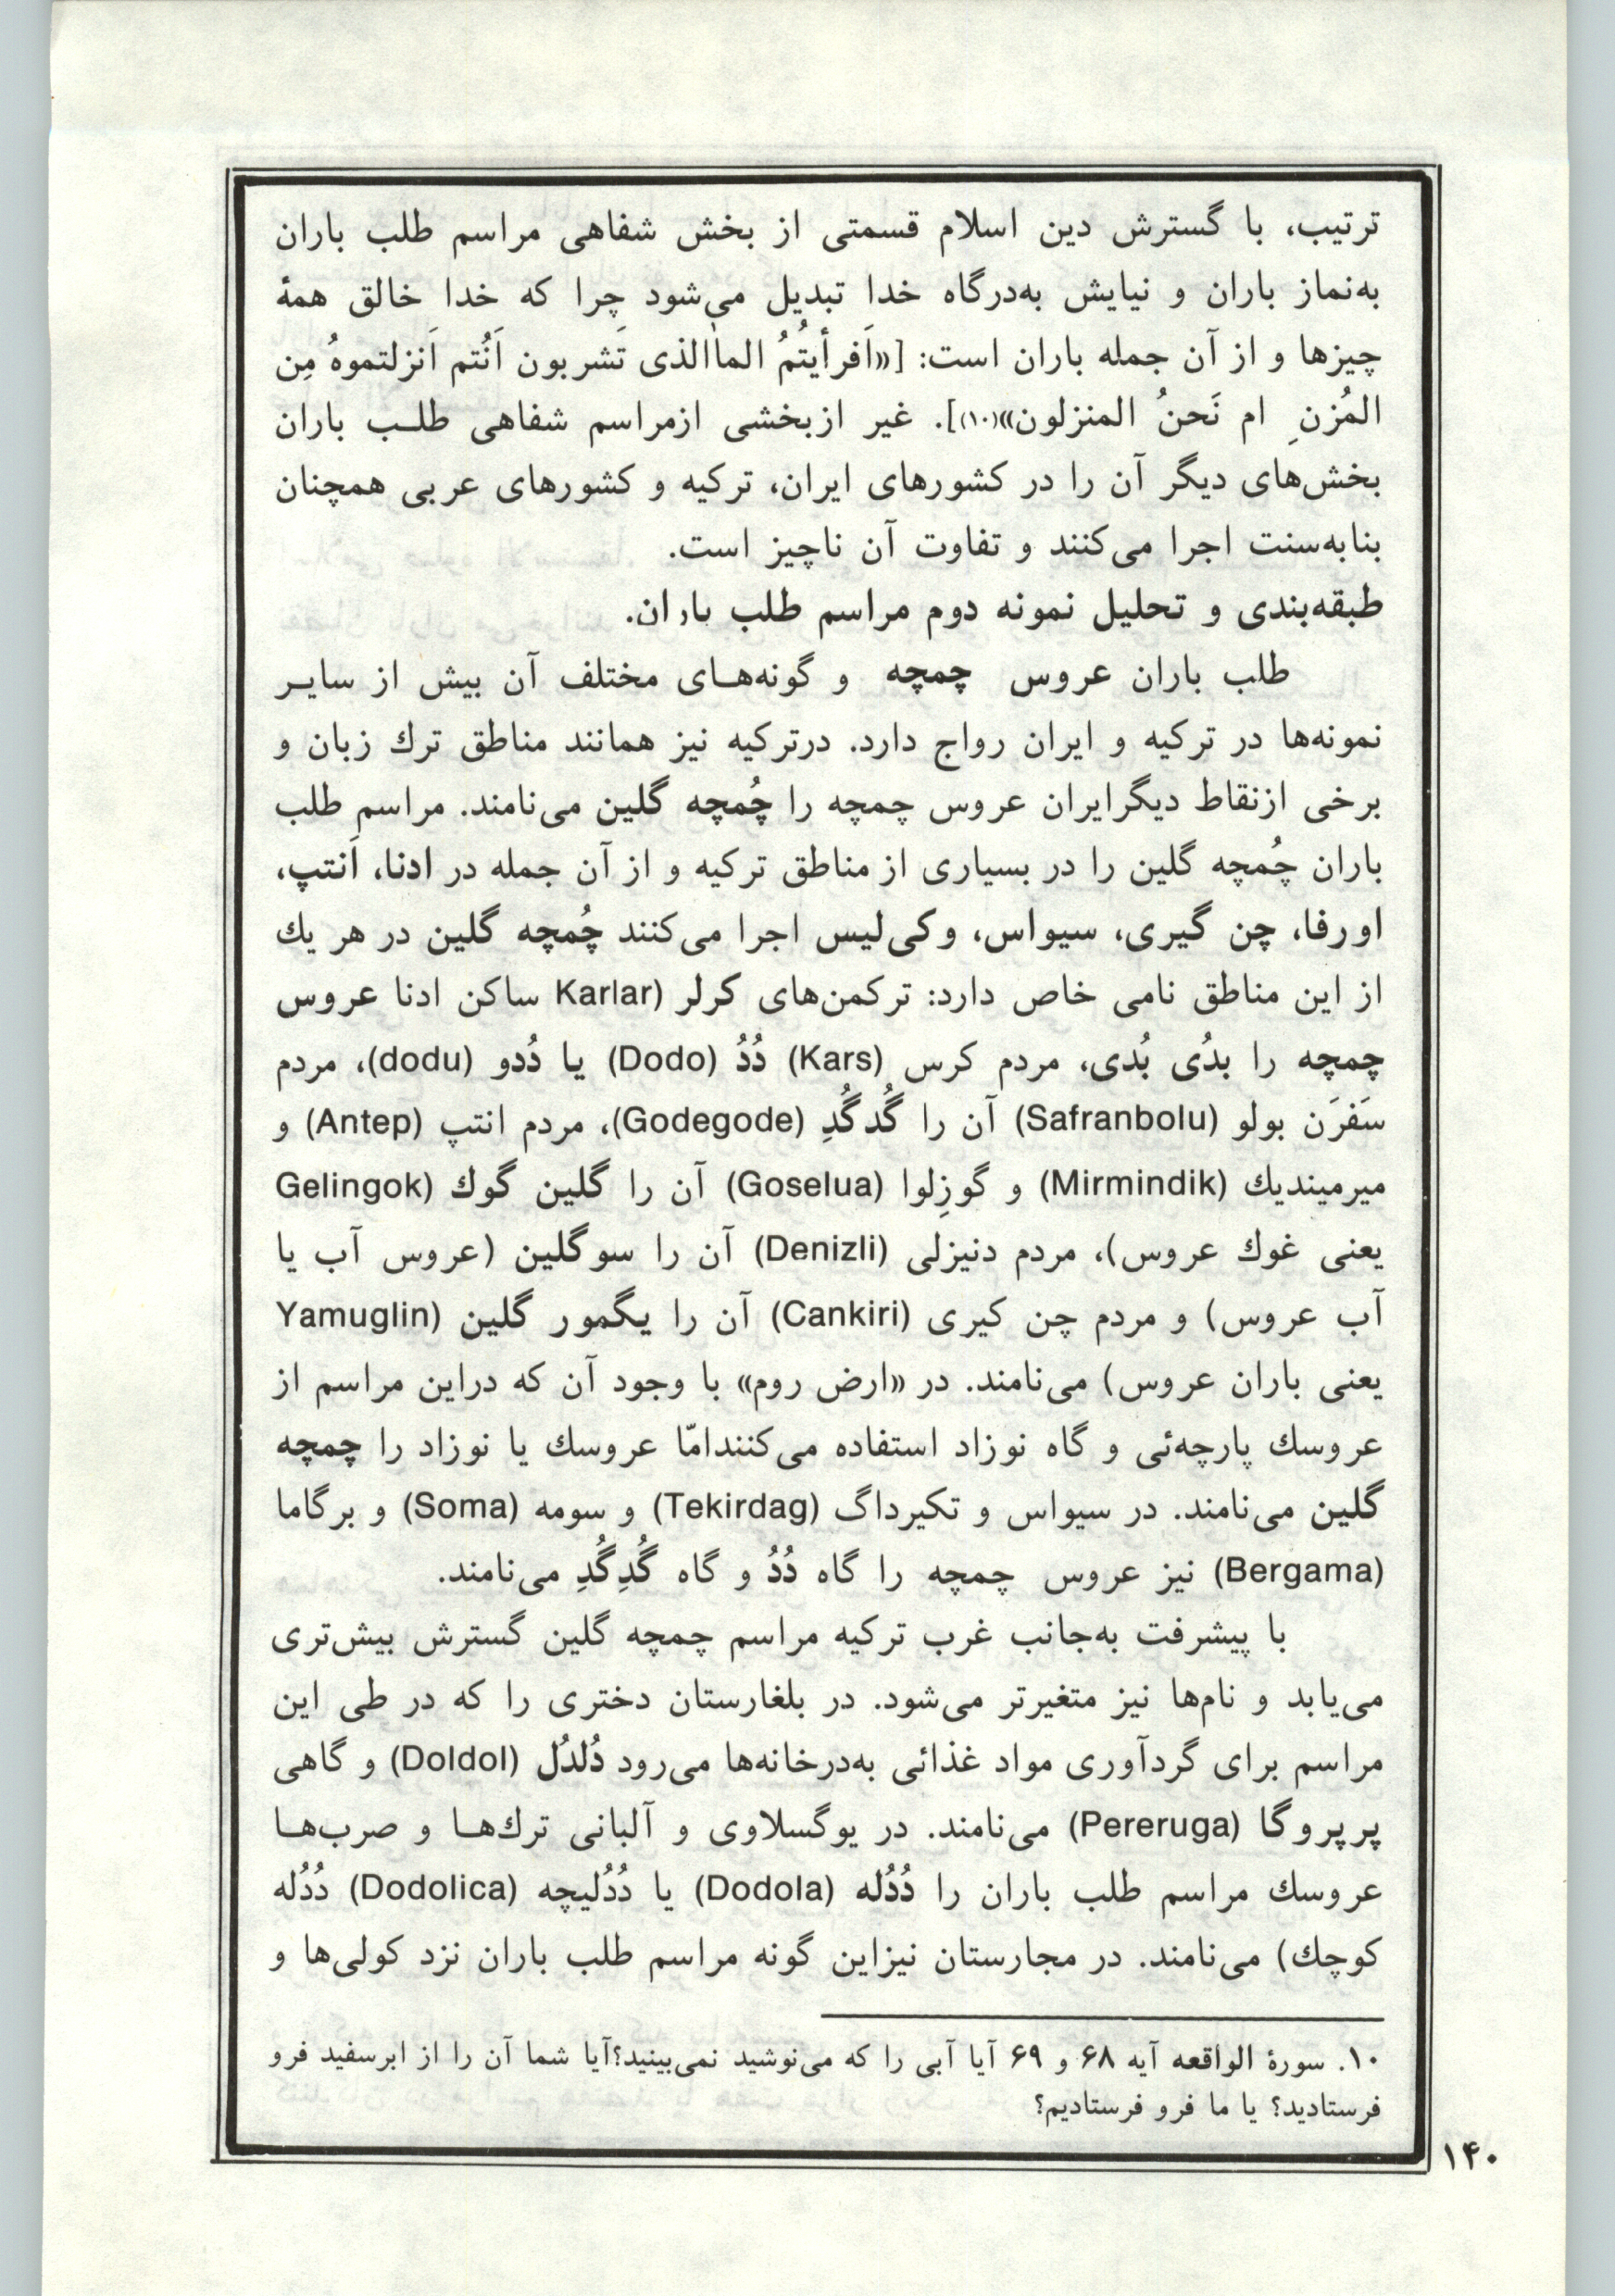 ترتیب، با گسترش دین اسلام قسمتی از بخش شفاهی مراسم طلب باران
به‌نماز باران و نیایش به‌درگاه خدا تبدیل می‌شود چرا که خدا خالق همهٔ
چیزها و از آن جمله باران است: [«اَفرأیتُمُ الماٰالذی تَشربون اَنُتم اَنزلتموهُ مِن
المُزنِ ام نَحنُ المنزلون»(۱۰)]. غیر ازبخشی ازمراسم شفاهی طلب باران
بخش‌های دیگر آن را در کشورهای ایران، ترکیه و کشورهای عربی همچنان
بنابه‌سنت اجرا می‌کنند و تفاوت آن ناچیز است.
طبقه‌بندی و تحلیل نمونه دوم مراسم طلب باران.
طلب باران عروس چمچه و گونه‌های مختلف آن بیش از سایر
نمونه‌ها در ترکیه و ایران رواج دارد. درترکیه نیز همانند مناطق ترك زبان و
برخی ازنقاط دیگرایران عروس چمچه را چُمچه گلین می‌نامند. مراسم طلب
باران چُمچه گلین را در بسیاری از مناطق ترکیه و از آن جمله در ادنا، اَنتپ،
اورفا، چن گیری، سیواس، وکی‌لیس اجرا می‌کنند چُمچه گلین در هر یك
از این مناطق نامی خاص دارد: ترکمن‌های کرلر (Karlar ساکن ادنا عروس
چمچه را بدُی بُدی، مردم کرس (Kars) دُدُ (Dodo) یا دُدو (dodu)، مردم
سَفرَن بولو (Safranbolu) آن را گُدگُدِ (Godegode)، مردم انتپ (Antep) و
میرمیندیك (Mirmindik) و گوزِلوا (Goselua) آن را گلین گوك (Gelingok
یعنی غوك عروس)، مردم دنیزلی (Denizli) آن را سوگلین (عروس آب یا
آب عروس) و مردم چن کیری (Cankiri) آن را یگمور گلین (Yamuglin
یعنی باران عروس) می‌نامند. در «ارض روم» با وجود آن که دراین مراسم از
عروسك پارچه‌ئی و گاه نوزاد استفاده می‌کنندامّا عروسك یا نوزاد را چمچه
گلین می‌نامند. در سیواس و تکیرداگ (Tekirdag) و سومه (Soma) و برگاما
(Bergama) نیز عروس چمچه را گاه دُدُ و گاه گُدِگُدِ می‌نامند.
با پیشرفت به‌جانب غرب ترکیه مراسم چمچه گلین گسترش بیش‌تری
می‌یابد و نام‌ها نیز متغیرتر می‌شود. در بلغارستان دختری را که در طی این
مراسم برای گردآوری مواد غذائی به‌درخانه‌ها می‌رود دُلدُل (Doldol) و گاهی
پرپروگا (Pereruga) می‌نامند. در یوگسلاوی و آلبانی ترك‌ها و صرب‌ها
عروسك مراسم طلب باران را دُدُله (Dodola) یا دُدُلیچه (Dodolica) دُدُله
کوچك) می‌نامند. در مجارستان نیزاین گونه مراسم طلب باران نزد کولی‌ها و
۱۰. سورهٔ الواقعه آیه ۶۸ و ۶۹ آیا آبی را که می‌نوشید نمی‌بینید؟آیا شما آن را از ابرسفید فرو
فرستادید؟ یا ما فرو فرستادیم؟
۱۴۰